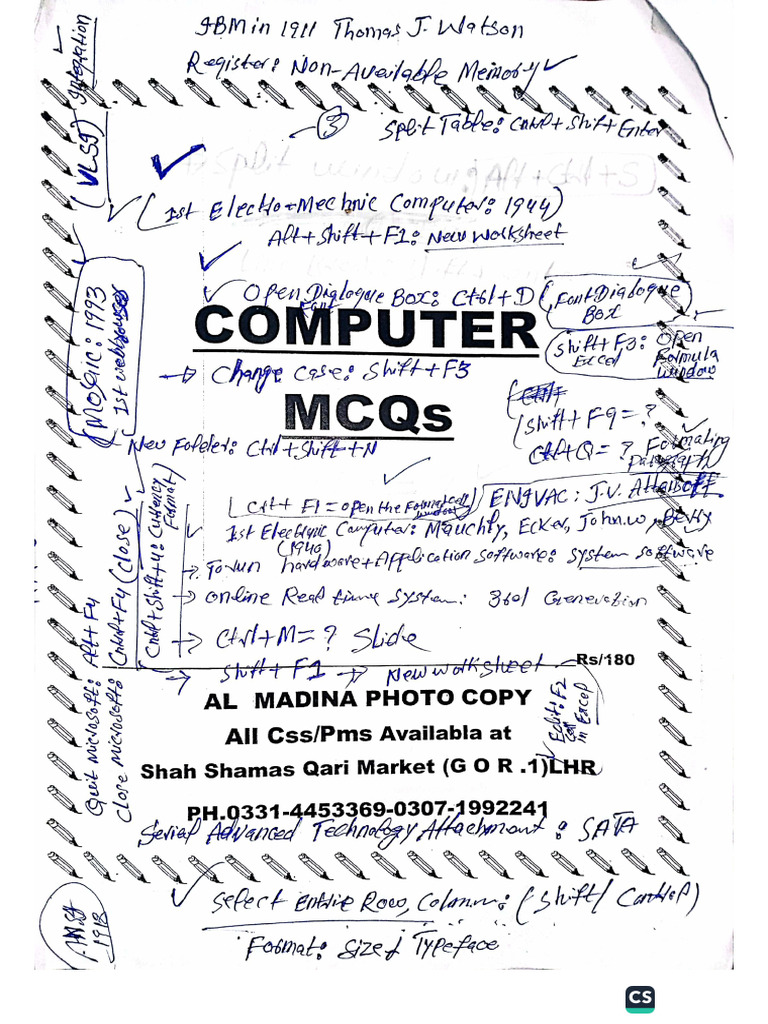 IBM in 1911 Thomas J. Watson
Register: Non-Available Memory
(VLSI) Integration
3
Split Table: Cntrl + Shift + Enter
Split window: Alt + Ctrl + S)
(1st Electro-Mechnic Computer: 1944)
Alt + Shift + F1: New Worksheet
Open Dialogue Box: Ctrl + D (Font Dialogue Box
Font
COMPUTER
Shift + F3: Open Formula window
Excel
→ Change case: Shift + F3
(Mosaic: 1993
1st webbrowser
MCQs
Ctrl+
(Shift + F9 = ?
Ctrl+Q = ? Formating Paragraph
New Folder: Ctrl + Shift + N
(Crl + F1 = open the Format cell window)
ENIVAC: J.V. Attansoff
1st Electronic Computer: Mauchly, Ecker, John.w, Berry
(1946)
→ To run hardware + Application software: system software
→ online Real time system: 3rd Generation
→ Ctrl + M = ? Slide
→ Shift + F1 → New worksheet
Cntrl + Shift + 4: (Currency Format)
Quit Microsoft: Alt + F4
Close Microsoft: Cntrl + F4 (Close)
Rs/180
Edit: F2
cell
in Excel
AL MADINA PHOTO COPY
All Css/Pms Availabla at
Shah Shamas Qari Market (G O R .1)LHR
PH.0331-4453369-0307-1992241
Serial Advanced Technology Attachment: SATA
Select Entire Row, Column: (Shift/ Control)
Format: Size & Typeface
ANSI
1918
CS